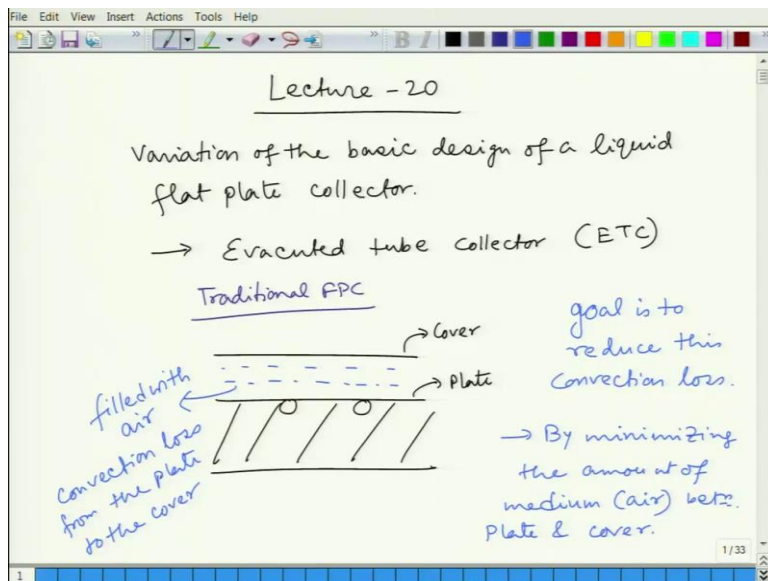 File Edit View Insert Actions Tools Help
Lecture - 20
Variation of the basic design of a liquid
flat plate collector.
→ Evacuted tube collector (ETC)
Traditional FPC
Cover
Plate
filled with
air
convection loss
from the plate
to the cover
goal is to
reduce this
convection loss.
→ By minimizing
the amount of
medium (air) betn.
plate & cover.
1/33
1